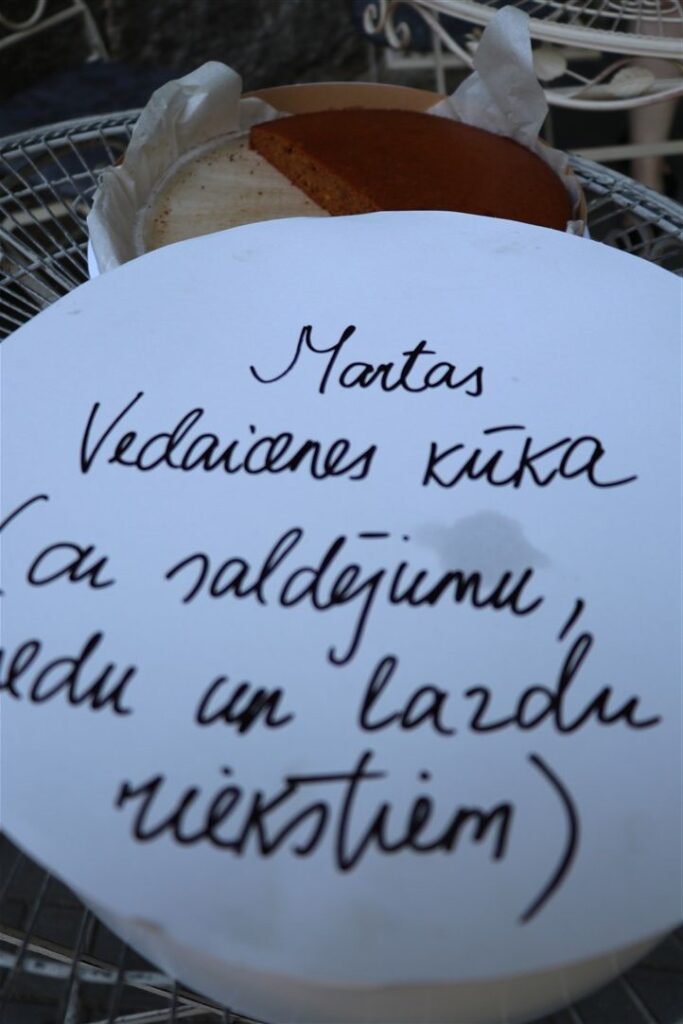 Martas
Vedaicenes kūka
(ar saldējumu,
medu un lazdu
riekstiem)